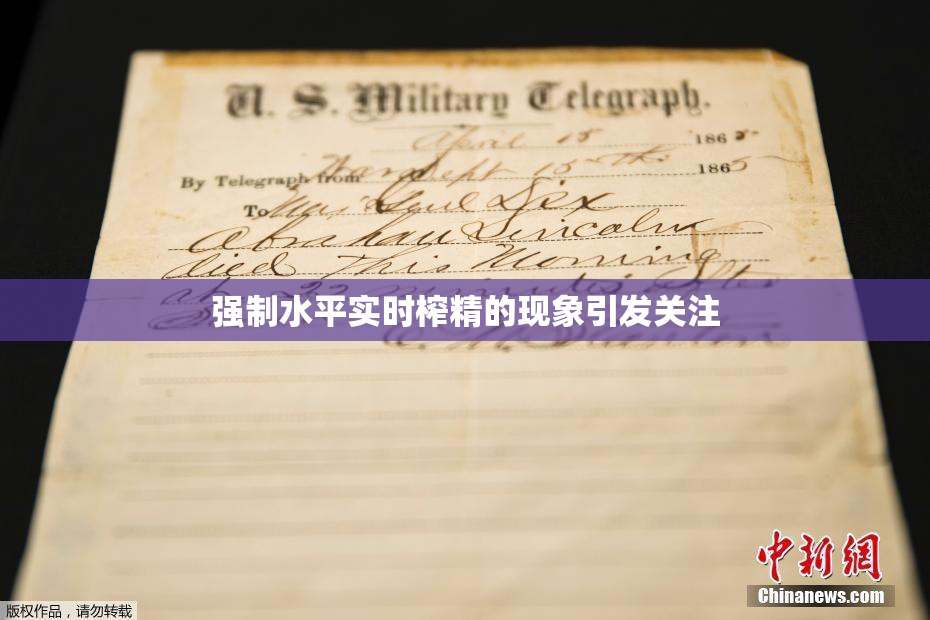 U. S. Military Telegraph.
April 15 1865
By Telegraph from War Dept 15th 1865
To Maj Genl Dix
Abraham Lincoln
died This Morning
at 22 minutes after
强制水平实时榨精的现象引发关注
中新網
Chinanews.com
版权作品，请勿转载